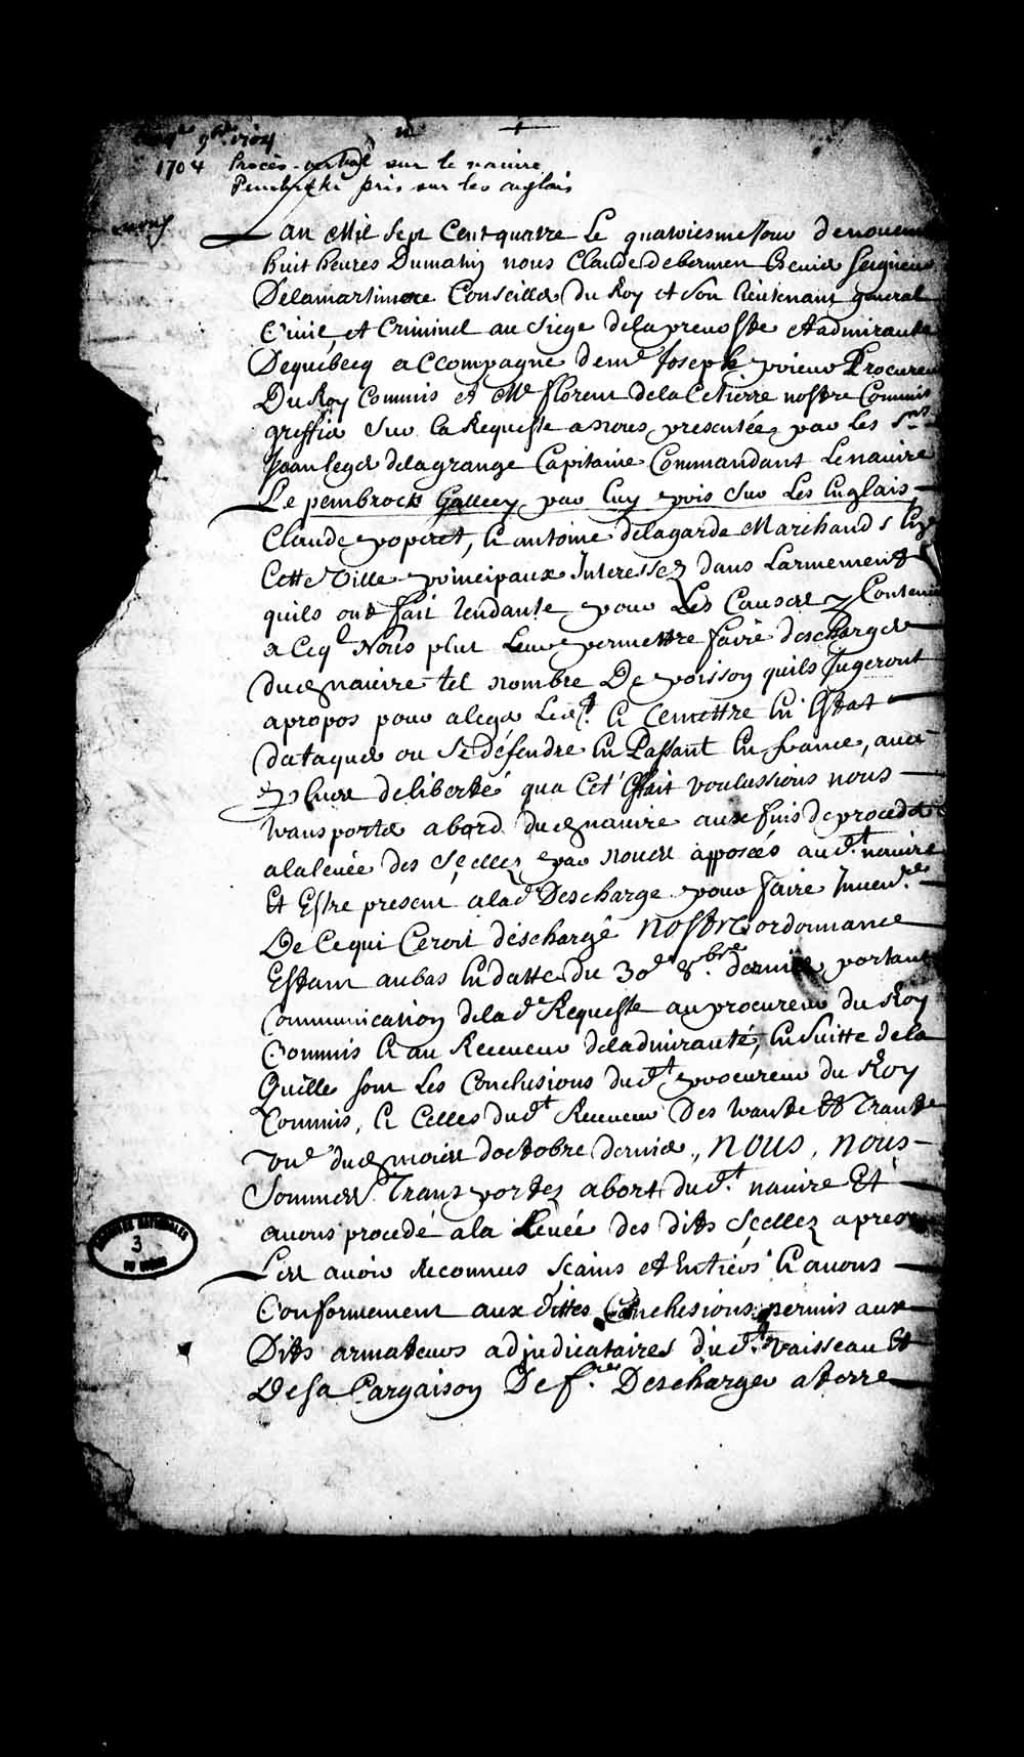 9bre 1704
1704 Procès-verbal sur le navire
Pembroke pris sur les anglais
Lan Mil Sept Cent quatre Le quatriesme Jour de novem
huit heures Dumatin nous Claude debermen Escuier seigneur
Delamartiniere Conseiller du Roy et son lieutenant general
Civil et Criminel au siege dela prevosté et admirauté
Dequebecq accompagné de me Joseph prieur Procureur
Du Roy Commis et Me florent delaCetierre nostre Commis
greffier sur la Requeste a nous presentée par les Srs
Jean leger delagrange Capitaine Commandant Lenavire
Le pembrock Gallery par luy pris sur Les Anglais
Claude poperet, & antoine delagarde Marchands
Cette Ville principaux Interessez dans Larmement
quils ont fait tendante pour Les Causes y Contenues
a Ceql Nous plut Leur permettre faire descharger
dud navire tel nombre De poisson quils Jugeront
apropos pour aleger Led. & Cemettre En Estat
dataquer ou se défendre En Passant En france, avec
plus deliberté qua Cet Effait voulussions nous
transporter abord dud navire aux fins de proceder
alalevée des Sçellez par nous apposées aud.t navire
Et Estre present alad Descharge pour faire Inven.re
De Cequi Ceroit deschargé nostre ordonnance
Estant aubas En datte du 30e 8.bre dernier portant
Communication delad Requeste au procureur du Roy
Commis & au Receveur deladmirauté, En suitte dela
Quelle sont Les Conclusions dud.t procureur du Roy
Commis, & Celles dud.t Receveur Des trante Et Trante
une dud mois doctobre dernier, nous, nous
Sommes Transportez abort dud.t navire Et
avons procedé ala Levée des dits Sçellez apres
Les avoir Reconnus sçains et Entiers & avons
Conformement aux dittes Conclusions permis aux
Dits armateurs adjudicataires dud.t vaisseau Et
De sa Cargaison De f.re Descharger aterre
3